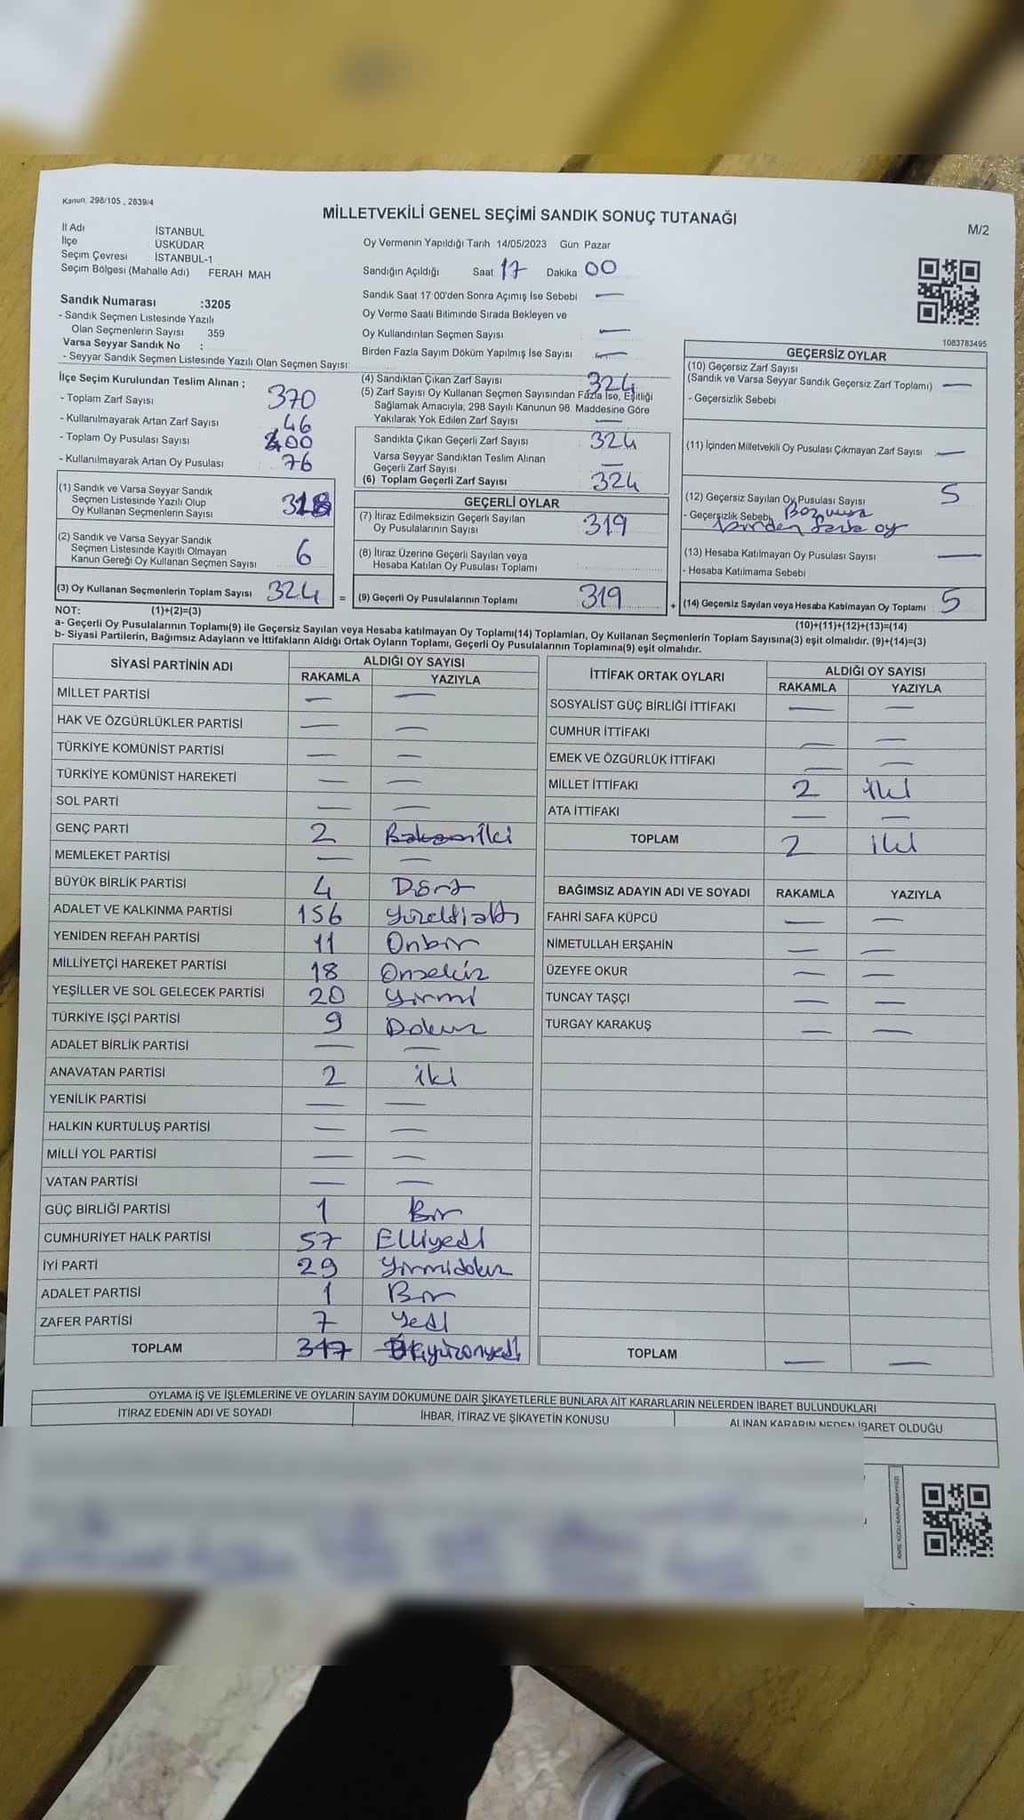 Kanun. 298/105 , 2839/4
MİLLETVEKİLİ GENEL SEÇİMİ SANDIK SONUÇ TUTANAĞI
M/2
İl Adı İSTANBUL
İlçe ÜSKÜDAR
Seçim Çevresi İSTANBUL-1
Seçim Bölgesi (Mahalle Adı) FERAH MAH
Oy Vermenin Yapıldığı Tarih 14/05/2023 Gün Pazar
Sandığın Açıldığı Saat 17 Dakika 00
Sandık Saat 17:00'den Sonra Açımış İse Sebebi —
Oy Verme Saati Bitiminde Sırada Bekleyen ve
Oy Kullandırılan Seçmen Sayısı —
Birden Fazla Sayım Döküm Yapılmış İse Sayısı —
Sandık Numarası :3205
- Sandık Seçmen Listesinde Yazılı
Olan Seçmenlerin Sayısı 359
Varsa Seyyar Sandık No :
- Seyyar Sandık Seçmen Listesinde Yazılı Olan Seçmen Sayısı
1083783495
İlçe Seçim Kurulundan Teslim Alınan ;
- Toplam Zarf Sayısı 370
- Kullanılmayarak Artan Zarf Sayısı 46
- Toplam Oy Pusulası Sayısı 400
- Kullanılmayarak Artan Oy Pusulası 76
(1) Sandık ve Varsa Seyyar Sandık
Seçmen Listesinde Yazılı Olup
Oy Kullanan Seçmenlerin Sayısı 318
(2) Sandık ve Varsa Seyyar Sandık
Seçmen Listesinde Kayıtlı Olmayan
Kanun Gereği Oy Kullanan Seçmen Sayısı 6
(3) Oy Kullanan Seçmenlerin Toplam Sayısı 324 =
(4) Sandıktan Çıkan Zarf Sayısı 324
(5) Zarf Sayısı Oy Kullanan Seçmen Sayısından Fazla İse, Eşitliği
Sağlamak Amacıyla, 298 Sayılı Kanunun 98. Maddesine Göre
Yakılarak Yok Edilen Zarf Sayısı —
Sandıkta Çıkan Geçerli Zarf Sayısı 324
Varsa Seyyar Sandıktan Teslim Alınan
Geçerli Zarf Sayısı —
(6) Toplam Geçerli Zarf Sayısı 324
GEÇERLİ OYLAR
(7) İtiraz Edilmeksizin Geçerli Sayılan
Oy Pusulalarının Sayısı 319
(8) İtiraz Üzerine Geçerli Sayılan veya
Hesaba Katılan Oy Pusulası Toplamı
(9) Geçerli Oy Pusulalarının Toplamı 319 +
GEÇERSİZ OYLAR
(10) Geçersiz Zarf Sayısı
(Sandık ve Varsa Seyyar Sandık Geçersiz Zarf Toplamı) —
- Geçersizlik Sebebi
(11) İçinden Milletvekili Oy Pusulası Çıkmayan Zarf Sayısı —
(12) Geçersiz Sayılan Oy Pusulası Sayısı 5
- Geçersizlik Sebebi
fazla oy
(13) Hesaba Katılmayan Oy Pusulası Sayısı —
- Hesaba Katılmama Sebebi
(14) Geçersiz Sayılan veya Hesaba Katılmayan Oy Toplamı 5
NOT: (1)+(2)=(3) (10)+(11)+(12)+(13)=(14)
a- Geçerli Oy Pusulalarının Toplamı(9) ile Geçersiz Sayılan veya Hesaba katılmayan Oy Toplamı(14) Toplamları, Oy Kullanan Seçmenlerin Toplam Sayısına(3) eşit olmalıdır. (9)+(14)=(3)
b- Siyasi Partilerin, Bağımsız Adayların ve İttifakların Aldığı Ortak Oyların Toplamı, Geçerli Oy Pusulalarının Toplamına(9) eşit olmalıdır.
SİYASİ PARTİNİN ADI ALDIĞI OY SAYISI
RAKAMLA YAZIYLA
MİLLET PARTİSİ — —
HAK VE ÖZGÜRLÜKLER PARTİSİ — —
TÜRKİYE KOMÜNİST PARTİSİ — —
TÜRKİYE KOMÜNİST HAREKETİ — —
SOL PARTİ — —
GENÇ PARTİ 2 İki
MEMLEKET PARTİSİ — —
BÜYÜK BİRLİK PARTİSİ 4 Dört
ADALET VE KALKINMA PARTİSİ 156 Yüzelliatı
YENİDEN REFAH PARTİSİ 11 Onbir
MİLLİYETÇİ HAREKET PARTİSİ 18 Onsekiz
YEŞİLLER VE SOL GELECEK PARTİSİ 20 Yirmi
TÜRKİYE İŞÇİ PARTİSİ 9 Dokuz
ADALET BİRLİK PARTİSİ — —
ANAVATAN PARTİSİ 2 iki
YENİLİK PARTİSİ — —
HALKIN KURTULUŞ PARTİSİ — —
MİLLİ YOL PARTİSİ — —
VATAN PARTİSİ — —
GÜÇ BİRLİĞİ PARTİSİ 1 Bir
CUMHURİYET HALK PARTİSİ 57 Elliyedi
İYİ PARTİ 29 Yirmidokuz
ADALET PARTİSİ 1 Bir
ZAFER PARTİSİ 7 Yedi
TOPLAM 317
İTTİFAK ORTAK OYLARI ALDIĞI OY SAYISI
RAKAMLA YAZIYLA
SOSYALİST GÜÇ BİRLİĞİ İTTİFAKI — —
CUMHUR İTTİFAKI — —
EMEK VE ÖZGÜRLÜK İTTİFAKI — —
MİLLET İTTİFAKI 2 iki
ATA İTTİFAKI — —
TOPLAM 2 iki
BAĞIMSIZ ADAYIN ADI VE SOYADI RAKAMLA YAZIYLA
FAHRİ SAFA KÜPCÜ — —
NİMETULLAH ERŞAHİN — —
ÜZEYFE OKUR — —
TUNCAY TAŞÇI — —
TURGAY KARAKUŞ — —
TOPLAM — —
OYLAMA İŞ VE İŞLEMLERİNE VE OYLARIN SAYIM DÖKÜMÜNE DAİR ŞİKAYETLERLE BUNLARA AİT KARARLARIN NELERDEN İBARET BULUNDUKLARI
İTİRAZ EDENİN ADI VE SOYADI İHBAR, İTİRAZ VE ŞİKAYETİN KONUSU ALINAN KARARIN NEDEN İBARET OLDUĞU